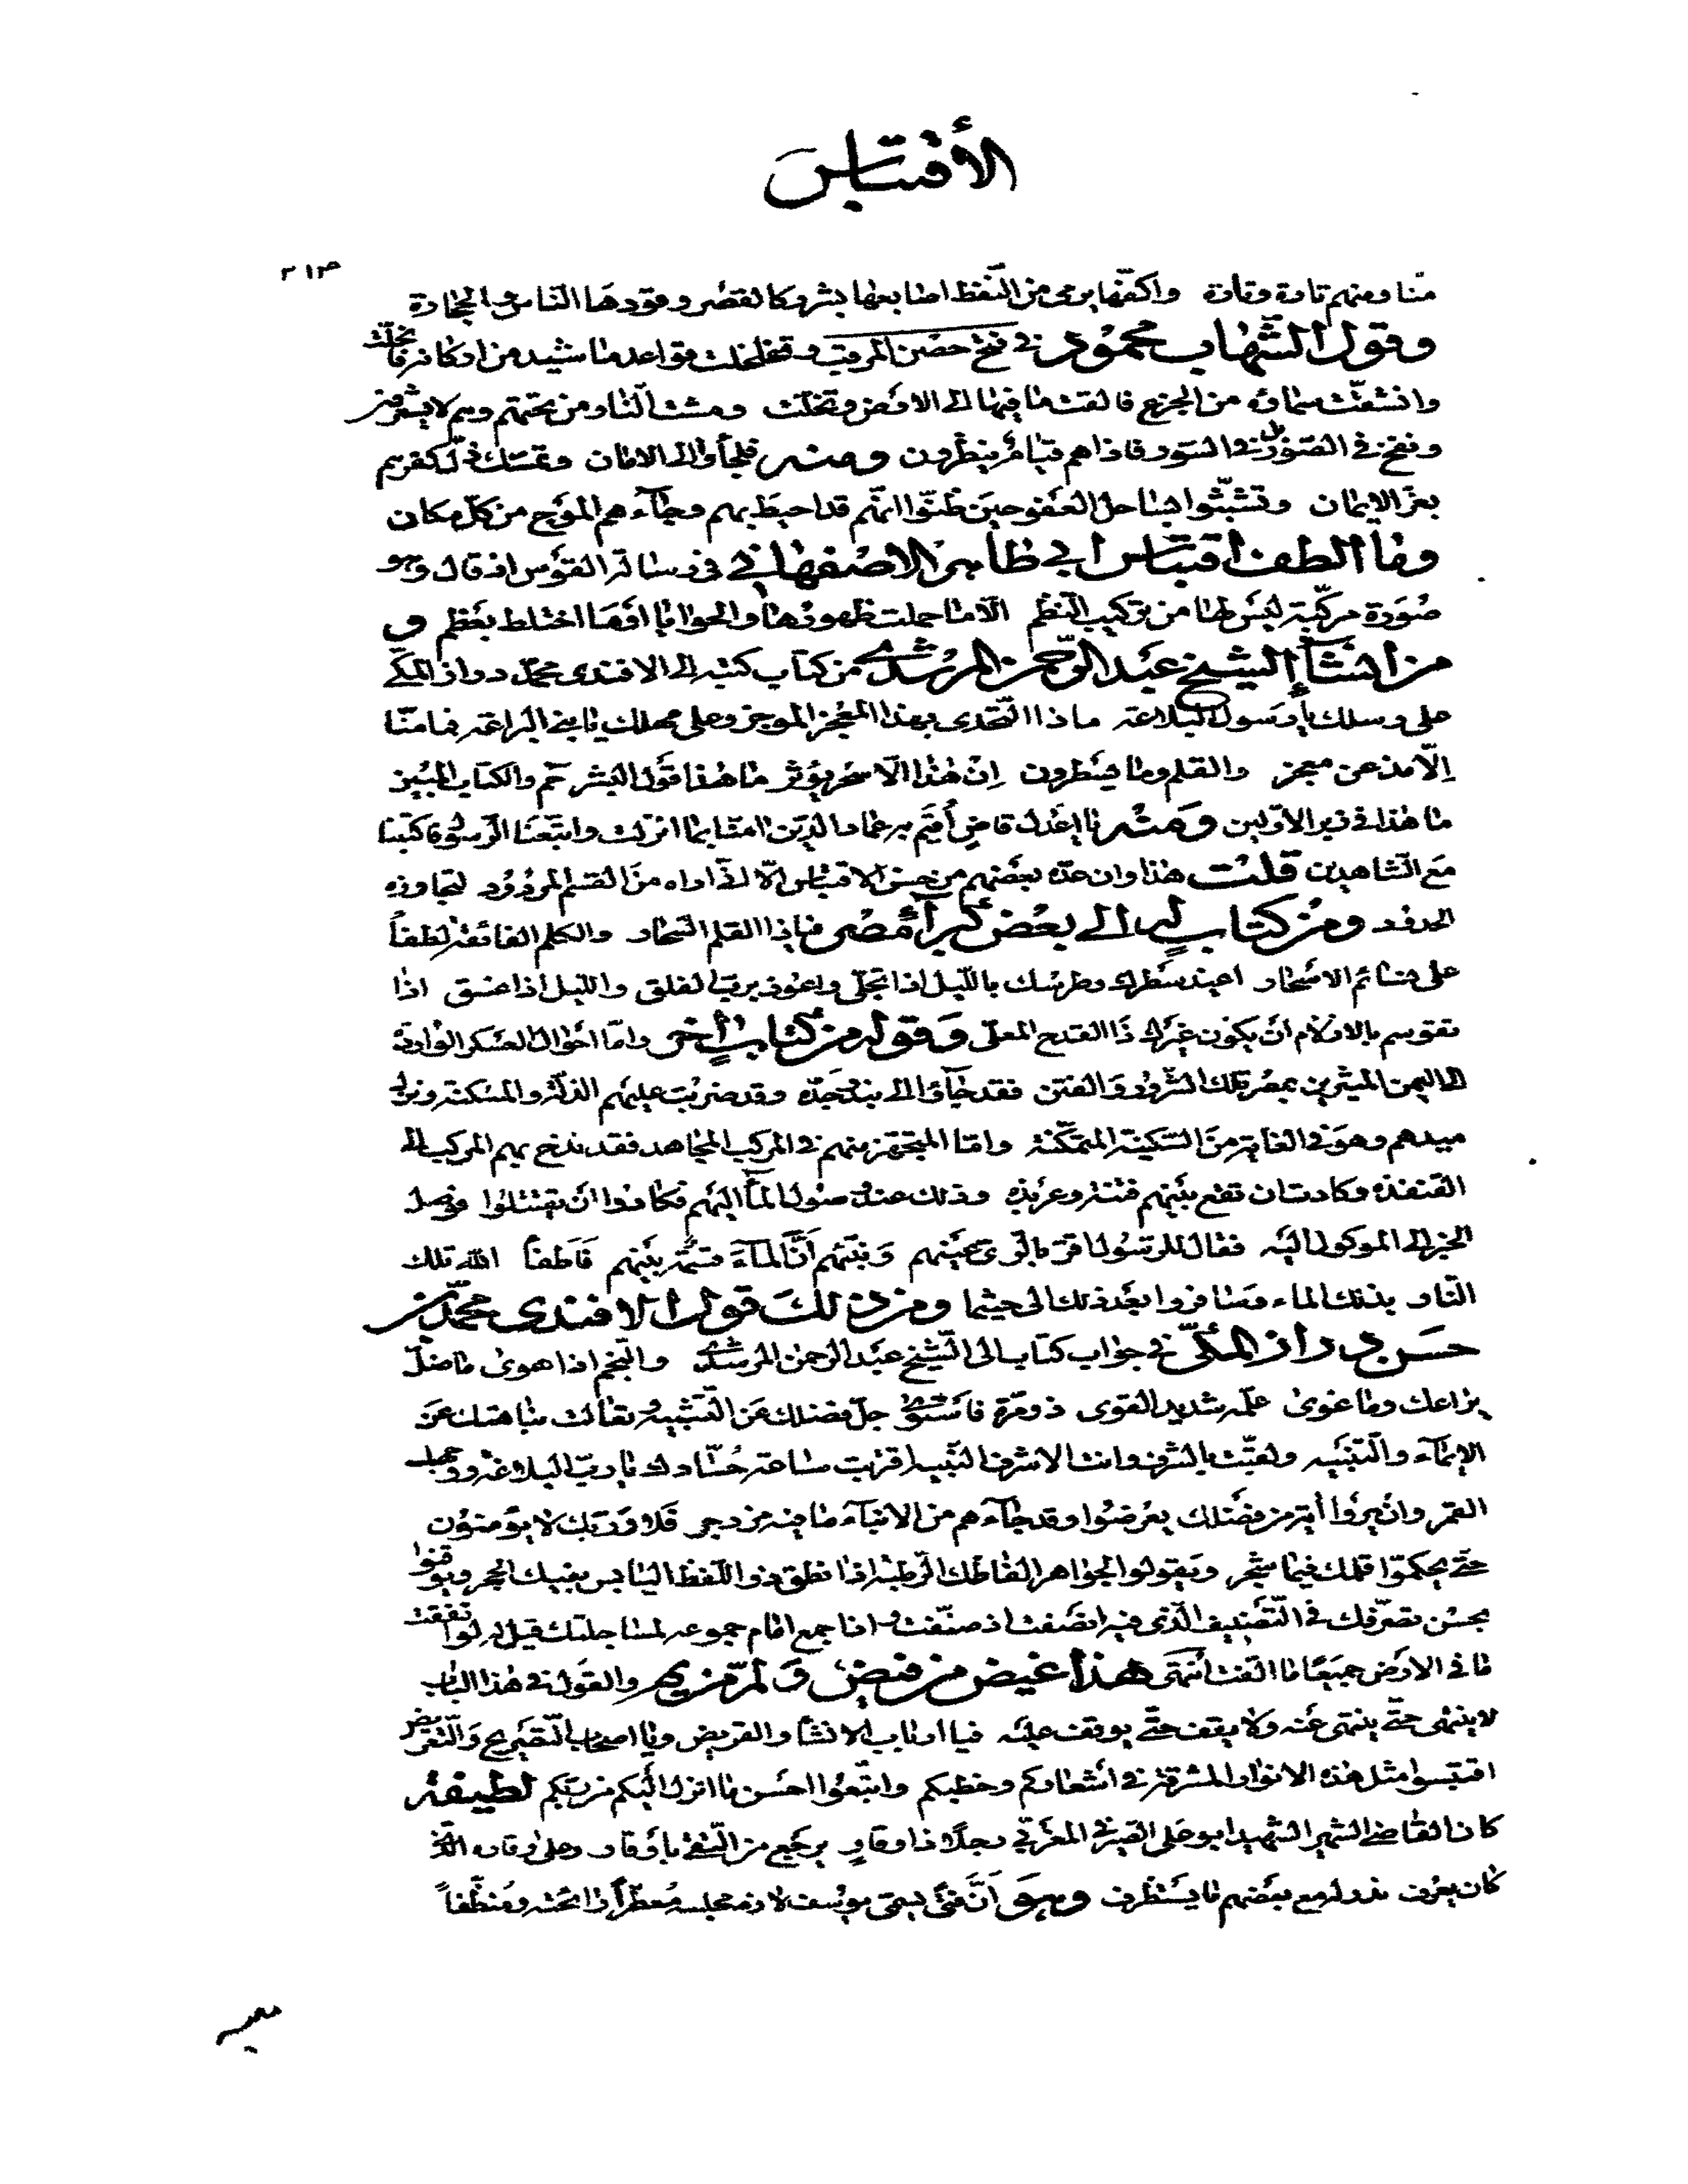 الأقتباس
٢١٣
منا ومنهم تارة وتارة واكفها يرمى من النفظ اصابعها بشرر كالقصر وقودها الناس والحجارة
وقول الشهاب محمود في فتح حصن المرقب وتخلخلت قواعد ما شيد من اركانه فانحلت
وانشقت سماؤه من الجزع فالقت ما فيها الى الارض وتخلت ومشت النار من تحتهم وهم لا يشعرون
ونفخ في الصور بل في السور فاذا هم قيام ينظرون ومنه فلجأوا الى الامان وتمسك ذل كفرهم
بعز الايمان وتشبثوا بساحل العفو حين ظنوا انهم قد احيط بهم وجآءهم الموج من كل مكان
وما الطف اقتباس ابي طاهر الاصفهاني في رسالة القوس اذ قال وهو
صورة مركبة ليس لها من تركيب النظم الا ما حملت ظهورها او الحوايا او ما اختلط بعظم و
من انشآء الشيخ عبد الرحمن المرشدي من كتاب كتبه الى الافندي محمد دراز المكي
على رسلك يا رسول البلاغة ماذا التحدى بهذا المعجز الموجز وعلى مهلك يا نبي البراعة فما منا
الا مذعن معجز والقلم وما يسطرون ان هذا الا سحر يؤثر ما هذا قول البشر حم والكتاب المبين
ما هذا في زبر الاولين ومنه يا اعدل قاض اقيم به عماد الدين امنا بما انزلت واتبعنا الرسول فاكتبنا
مع الشاهدين قلت هذا وان عده بعضهم من حسن الاقتباس الا اني اراه من القسم المردود لتجاوزه
الحدود ومن كتاب له الى بعض كبرآء مصر فيا ذا القلم السحار والكلم الفائقة لطفاً
على نسائم الاسحار اعيذ سطرك وطرسك بالليل اذا تجلى واعوذ برب الفلق والليل اذا عسق اذا
تقوسم بالاقلام ان يكون غيرك ذا القدح المعلى وقوله من كتاب اخر واما احوال العسكر الواردة
الى اليمن المثيرين بمصر تلك الشرور والفتن فقد جآؤا الى بندر جده وقد ضربت عليهم الذلة والمسكنة ونزل
سيدهم وهو في الغاية من السكينة المتمكنة واما المتجهز منهم في المركب المجاهد فقد ندخ بهم المركب الى
القنفذه وكادت ان تقع بينهم فتنة وعربذه وذلك عند وصول المآ اليهم فكادوا ان يقتتلوا ووصل
الخبر الى الموكول اليه فقال للرسول اقر بالوى عينهم ونبئهم ان المآء قسمة بينهم فاطفأ الله تلك
النار بذلك الماء وسافروا بعد ذلك الى حيثما ومن ذلك قول الافندى محمد بن
حسن دراز المكي في جواب كتاب الى الشيخ عبد الرحمن المرشدي والنجم اذا هوى ما ضل
يراعك وما غوى علمه شديد القوى ذو مرة فاستوى جل فضلك عن التشبيه وتعالت نباهتك عن
الايمآء والتنبيه ولقبت بالشرف وانت الاشرف النبيه اقربت ساعة حسادك يا رب البلاغة ووجهك
القمر وان يروا آية من فضلك يعرضوا وقد جآءهم من الانبآء ما فيه مزدجر فلا وربك لا يؤمنون
حتى يحكموا قلمك فيما شجر ويقولوا لجواهر الفاظك الرطبة اذا نطق ذو اللفظ اليابس بفيك الحجر ويوقنوا
بحسن تصرفك في التصنيف الذي فيه انصفت اذ صنفت واذا جمع امام جموعه لمساجلتك قيل له لو انفقت
ما في الارض جميعا ما الفت انتهى هذا غيض من فيض والقول في هذا الباب
لا ينتهى حتى ينتهى عنه ولا يقف حتى يوقف عليه فيا ارباب الانشآ والقريض ويا اصحاب التصريح والتعريض
اقتبسوا مثل هذه الانوار المشرقة في اشعاركم وخطبكم واتبعوا احسن ما انزل اليكم من ربكم لطيفة
كان القاضي الشهير الشهيد ابو علي المغربي رجلا ذا وقار يرجع من التقى باوقار وعلى وقاره الذي
كان يعرف ندر له مع بعضهم ما يستظرف وهو ان فتى يسمى يوسف لازم مجلسه معطراً رائحته ومنظفاً